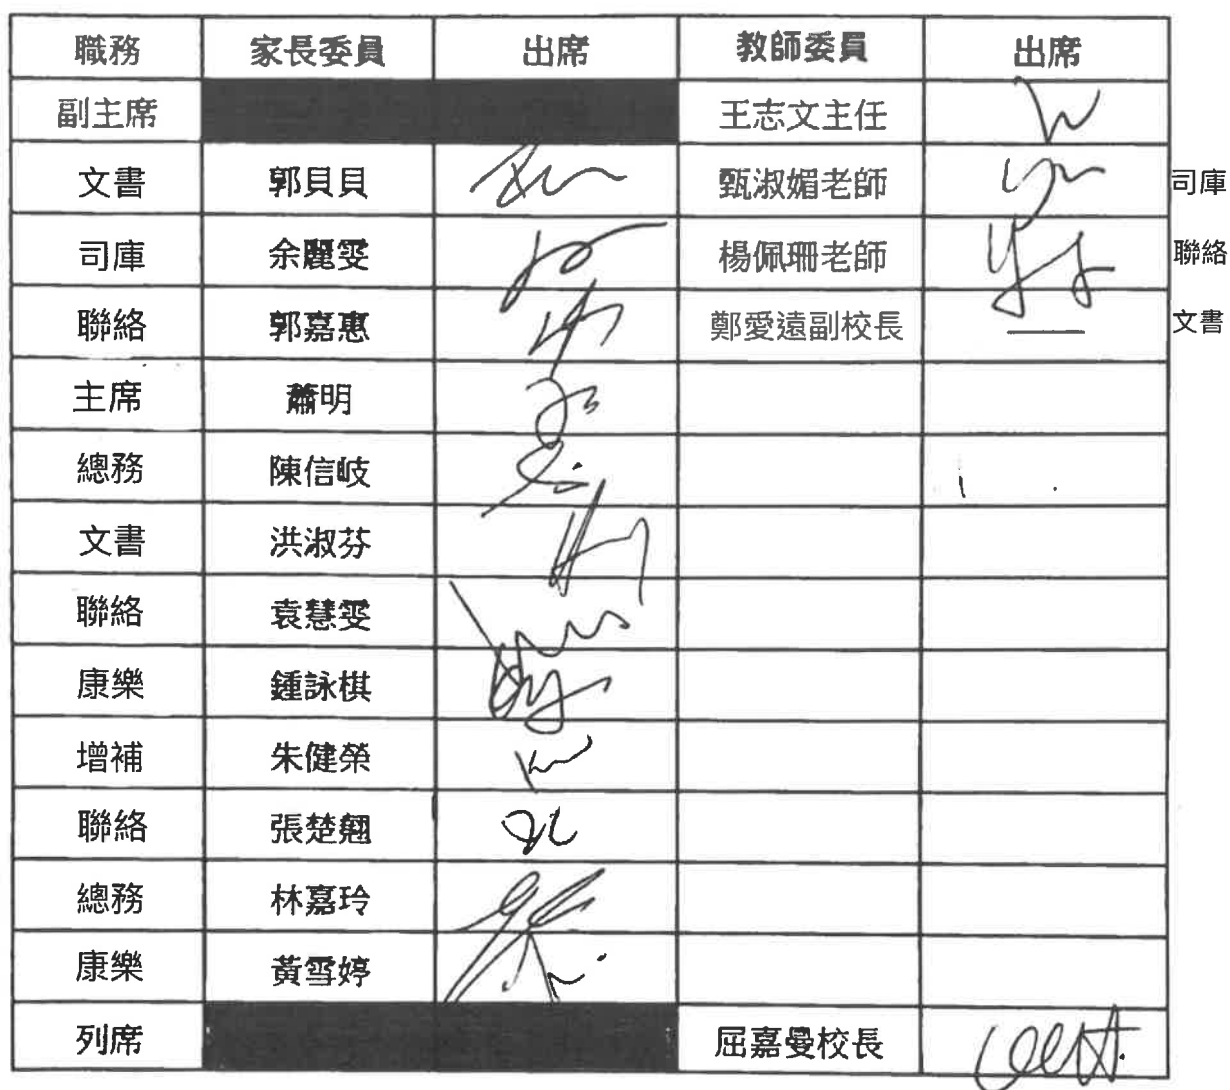 職務 家長委員 出席 教師委員 出席
副主席 王志文主任
文書 郭貝貝 甄淑媚老師 司庫
司庫 余麗雯 楊佩珊老師 聯絡
聯絡 郭嘉惠 鄭愛遠副校長 文書
主席 蕭明
總務 陳信岐
文書 洪淑芬
聯絡 袁慧雯
康樂 鍾詠棋
增補 朱健榮
聯絡 張楚翹
總務 林嘉玲
康樂 黃雪婷
列席 屈嘉曼校長